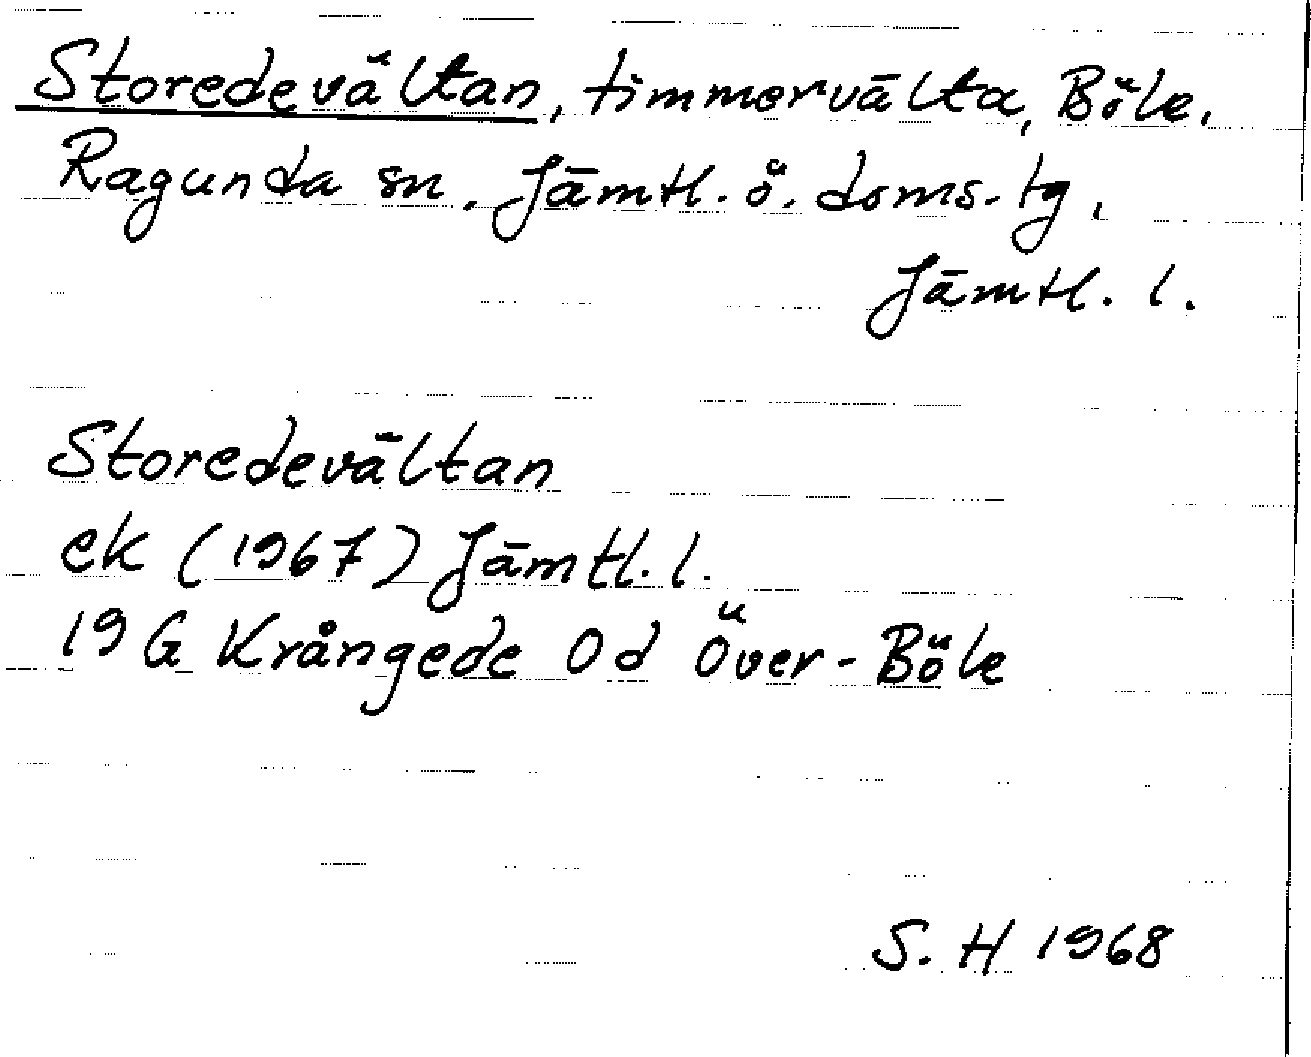 Storedevältan, timmervälta, Böle,
Ragunda sn. Jämtl. ö. doms. tg,
Jämtl. l.
Storedevältan
ek (1967) Jämtl. l.
19 G Krångede 0d Över-Böle
S. H 1968